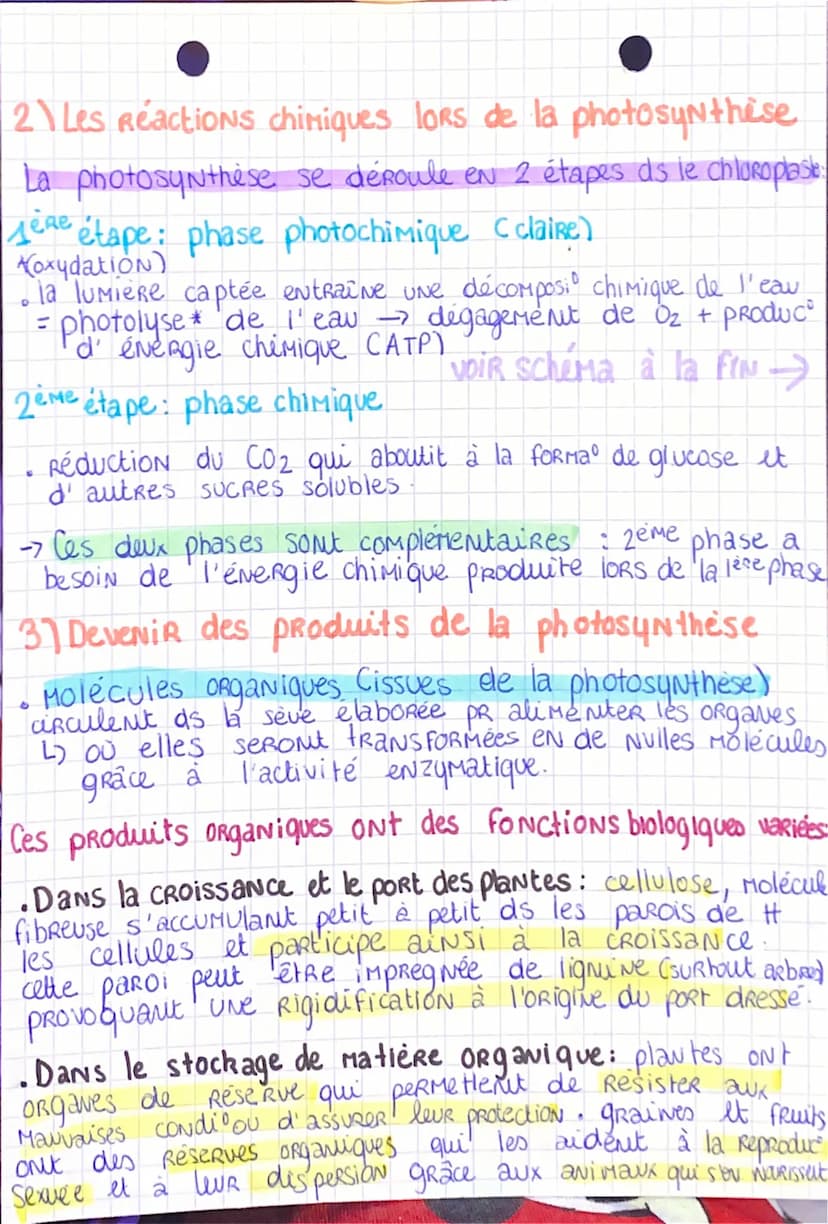 2) Les Réactions chimiques lors de la photosynthèse
La photosynthèse se déroule en 2 étapes ds le chloroplaste:
1ère étape: phase photochimique (claire)
(oxydation)
• la lumière captée entraîne une décomposi° chimique de l'eau
= photolyse* de l'eau → dégagement de O2 + produc°
d'énergie chimique (ATP)
voir schéma à la fin →
2ème étape: phase chimique
• Réduction du CO2 qui aboutit à la forma° de glucose et
d'autres sucres solubles.
→ Ces deux phases sont complémentaires : 2ème phase a
besoin de l'énergie chimique produite lors de la 1ère phase
3) Devenir des produits de la photosynthèse
• Molécules organiques (issues de la photosynthèse)
circulent ds la sève élaborée pr alimenter les organes
↳ où elles seront transformées en de nvlles molécules
grâce à l'activité enzymatique.
Ces produits organiques ont des fonctions biologiques variées:
• Dans la croissance et le port des plantes: cellulose, molécule
fibreuse s'accumulant petit à petit ds les parois de tt
les cellules et participe ainsi à la croissance.
cette paroi peut être imprégnée de lignine (surtout arbres)
provoquant une rigidification à l'origine du port dressé.
• Dans le stockage de matière organique: plantes ont
organes de réserve qui permettent de résister aux
mauvaises condi° ou d'assurer leur protection. graines et fruits
ont des réserves organiques qui les aident à la reproduc°
sexuée et à leur dispersion grâce aux animaux qui s'en nourissent